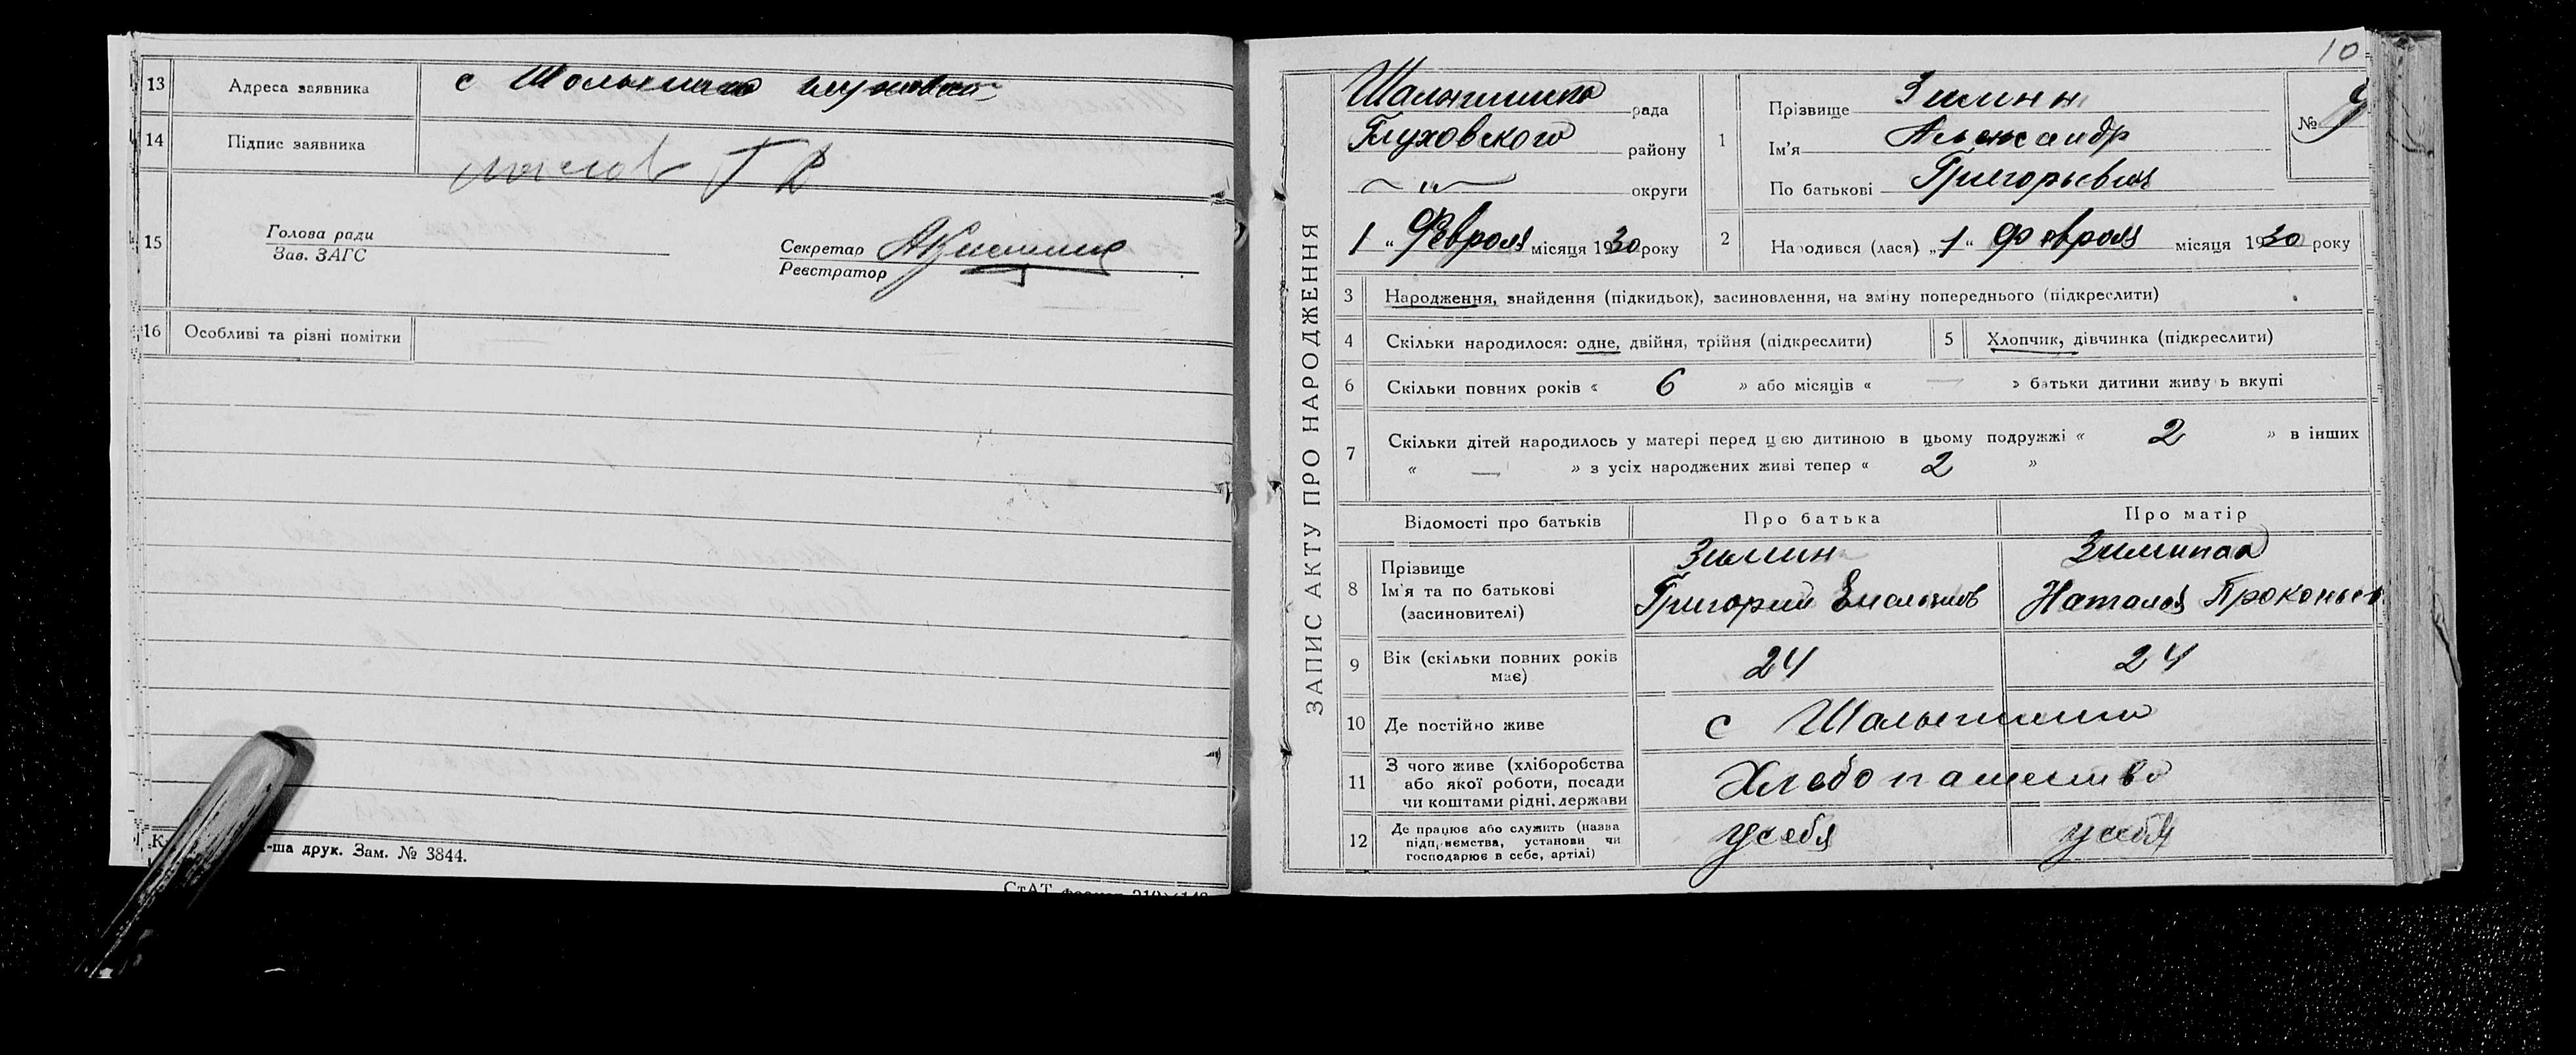 13 Адреса заявника с
14 Підпис заявника
15
Голова ради
Зав. ЗАГС
Секретар
Реєстратор
16 Особливі та різні помітки
-ша друк. Зам. № 3844.
10
ЗАПИС АКТУ ПРО НАРОДЖЕННЯ
рада
Глуховского району
— " — округи
1 „ Февроля місяця 1930 року
1
Прізвище Зимин
Ім'я Александр
По батькові Григорьевич
№ 9
2 Народився (лася) „1“ Февроля місяця 1930 року
3 Народження, знайдення (підкидьок), засиновлення, на зміну попереднього (підкреслити)
4 Скільки народилося: одне, двійня, трійня (підкреслити)
5 Хлопчик, дівчинка (підкреслити)
6 Скільки повних років « 6 » або місяців « — » батьки дитини живуть вкупі
7 Скільки дітей народилось у матері перед цією дитиною в цьому подружжі « 2 » в інших
« — » з усіх народжених живі тепер « 2 »
Відомості про батьків Про батька Про матір
8 Прізвище
Ім'я та по батькові
(засиновителі)
Зимин
Григорий
Наталья
9 Вік (скільки повних років має) 24 24
10 Де постійно живе с
11 З чого живе (хліборобства
або якої роботи, посади
чи коштами рідні, держави
Хлебопашество
12 Де працює або служить (назва
підприємства, установи чи
господарює в себе, артілі)
у себя у себя